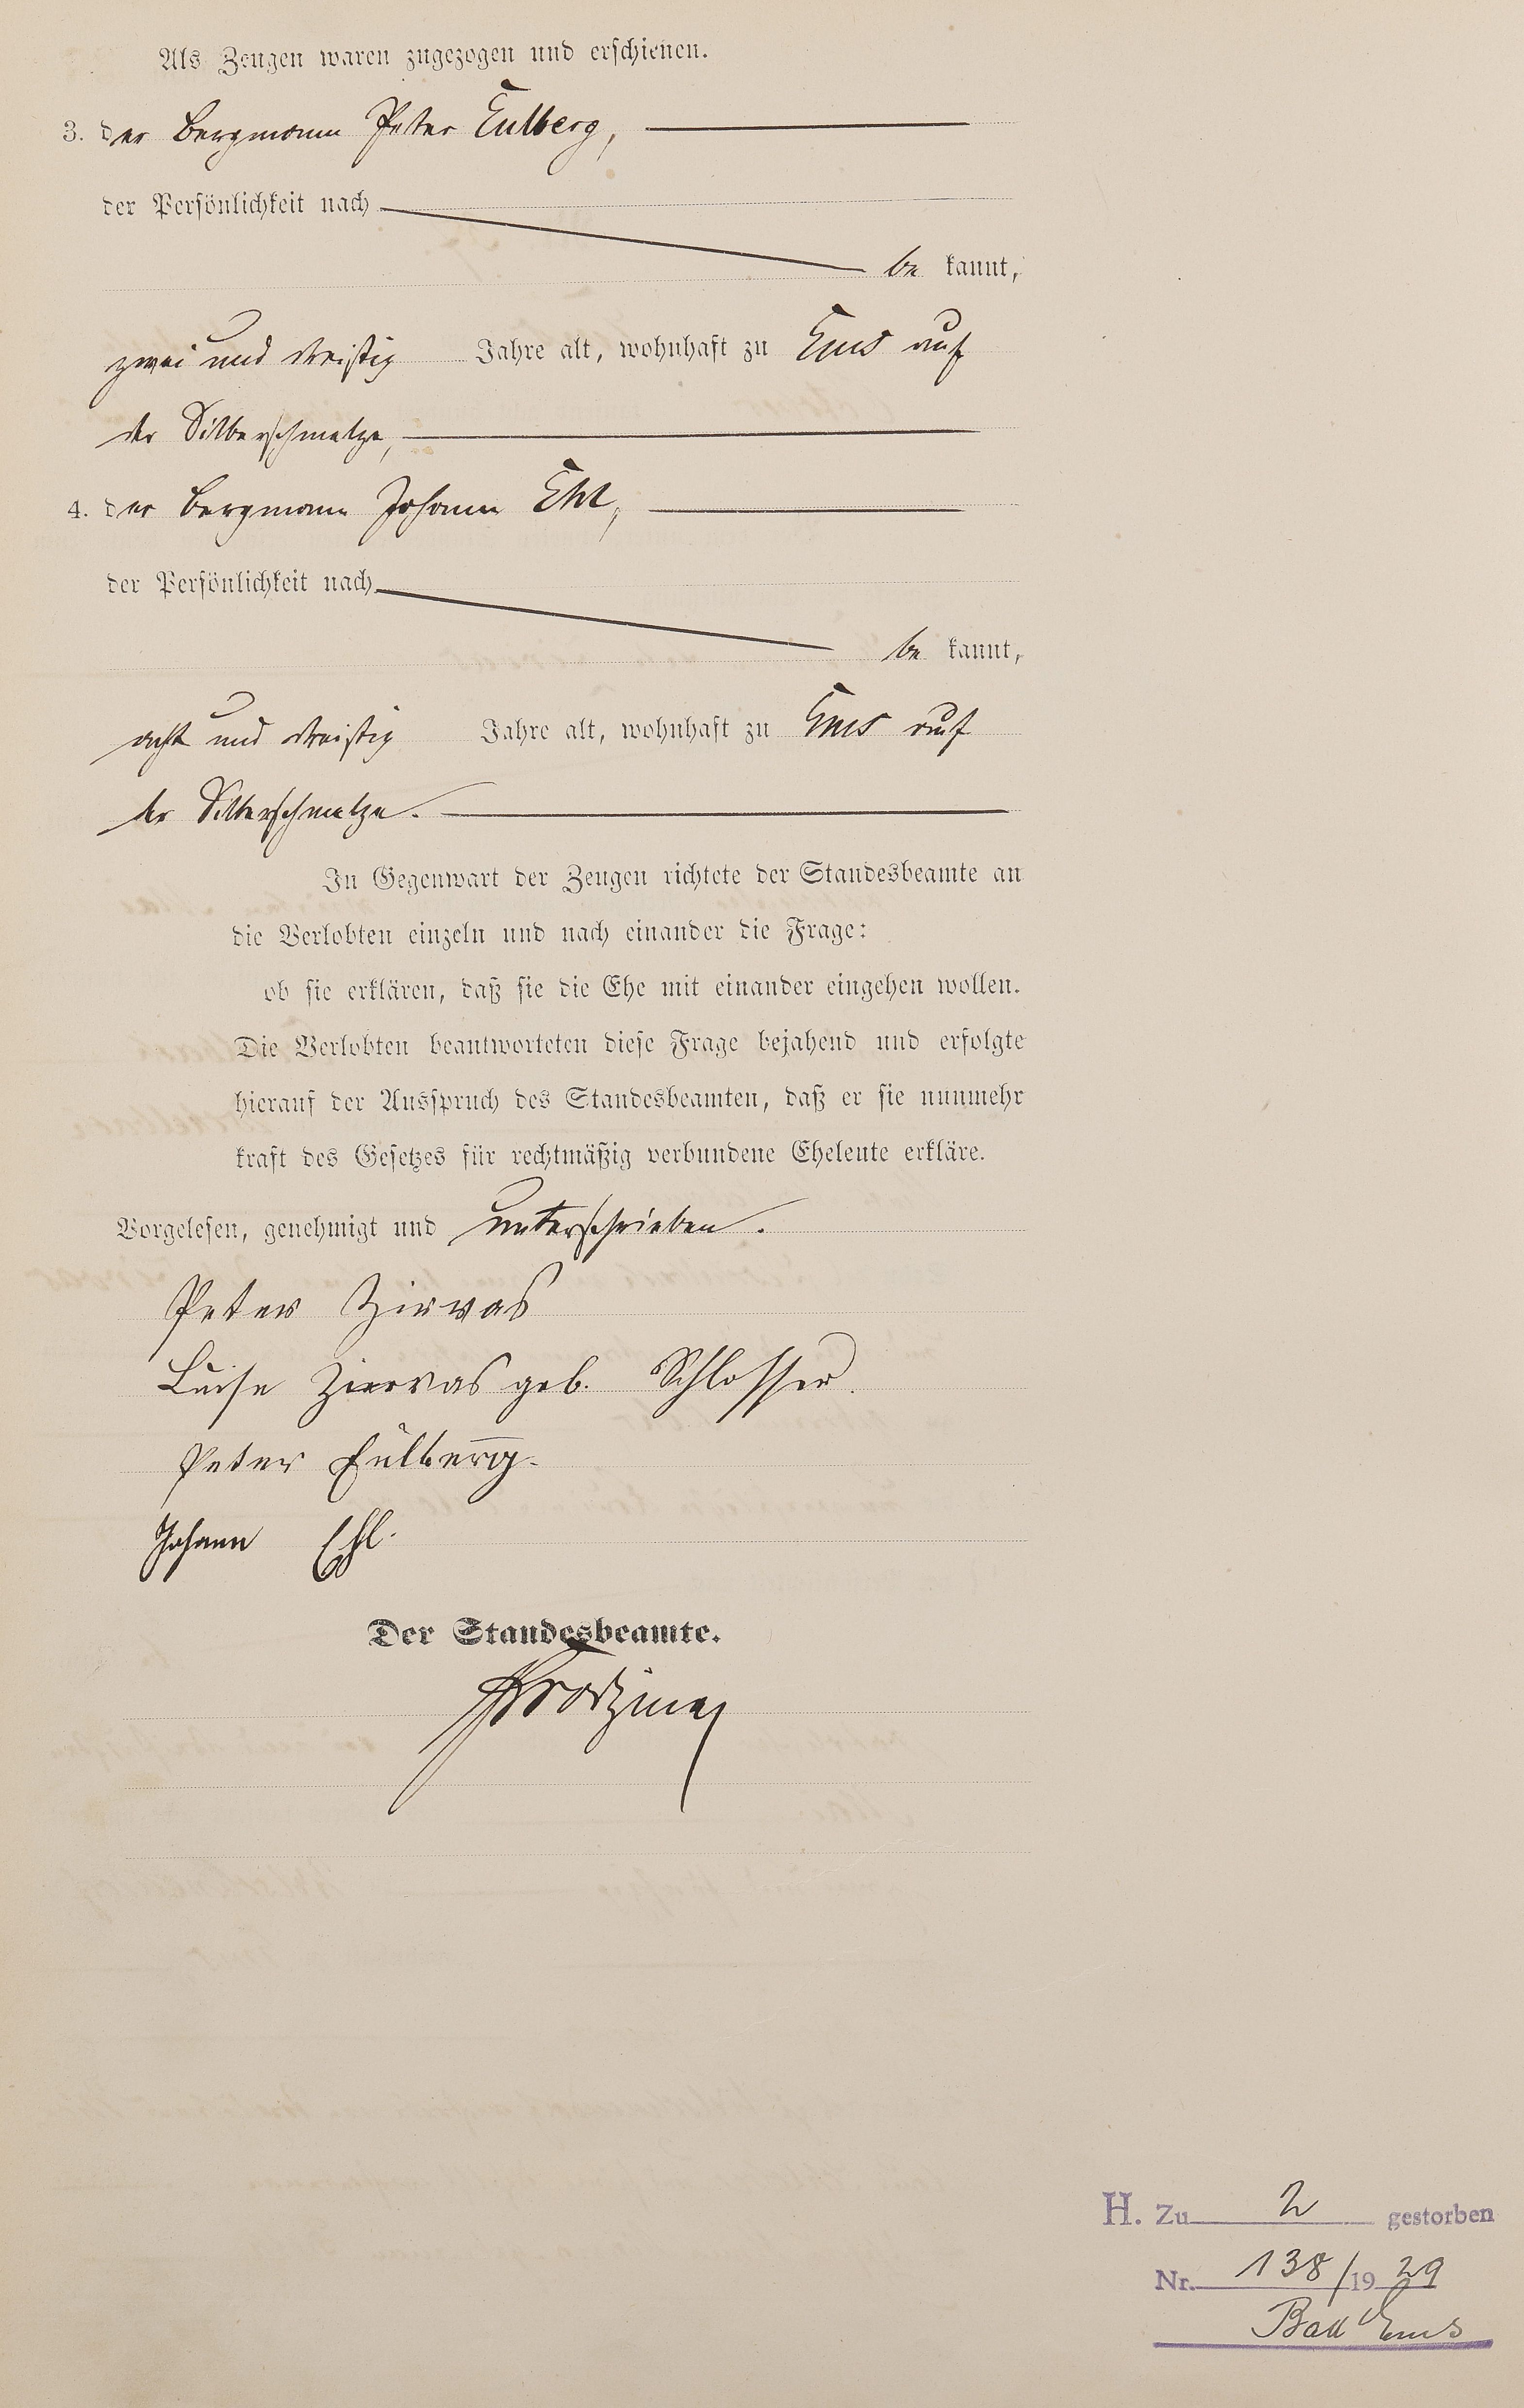 Als Zeugen waren zugezogen und erschienen.
3. der Bergmann Peter Eulberg,
der Persönlichkeit nach
be kannt,
zwei und dreißig Jahre alt, wohnhaft zu Ems auf
der Silberschmelze,
4. der Bergmann Johann Ehl,
der Persönlichkeit nach
be kannt,
acht und dreißig Jahre alt, wohnhaft zu Ems auf
der Silberschmelze.
In Gegenwart der Zeugen richtete der Standesbeamte an
die Verlobten einzeln und nach einander die Frage:
ob sie erklären, daß sie die Ehe mit einander eingehen wollen.
Die Verlobten beantworteten diese Frage bejahend und erfolgte
hierauf der Ausspruch des Standesbeamten, daß er sie nunmehr
kraft des Gesetzes für rechtmäßig verbundene Eheleute erkläre.
Vorgelesen, genehmigt und unterschrieben.
Peter Zirvas
Luise Zirvas geb. Schlosser.
Peter Eulberg.
Johann Ehl.
Der Standesbeamte.
H. Zu 2 gestorben
Nr. 138/1929
Bad Ems